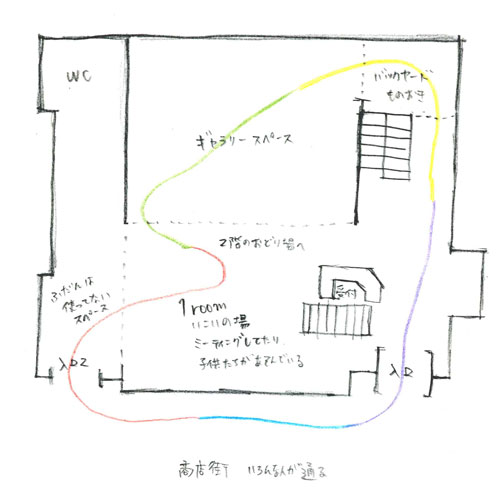 WC
バックヤード
ものおき
ギャラリースペース
2階のおどり場へ
ふだんは
使ってない
スペース
1 room
いこいの場
ミーティングしてたり
子供たちがあそんでいる
受付
入口2
入口
商店街 いろんな人が通る